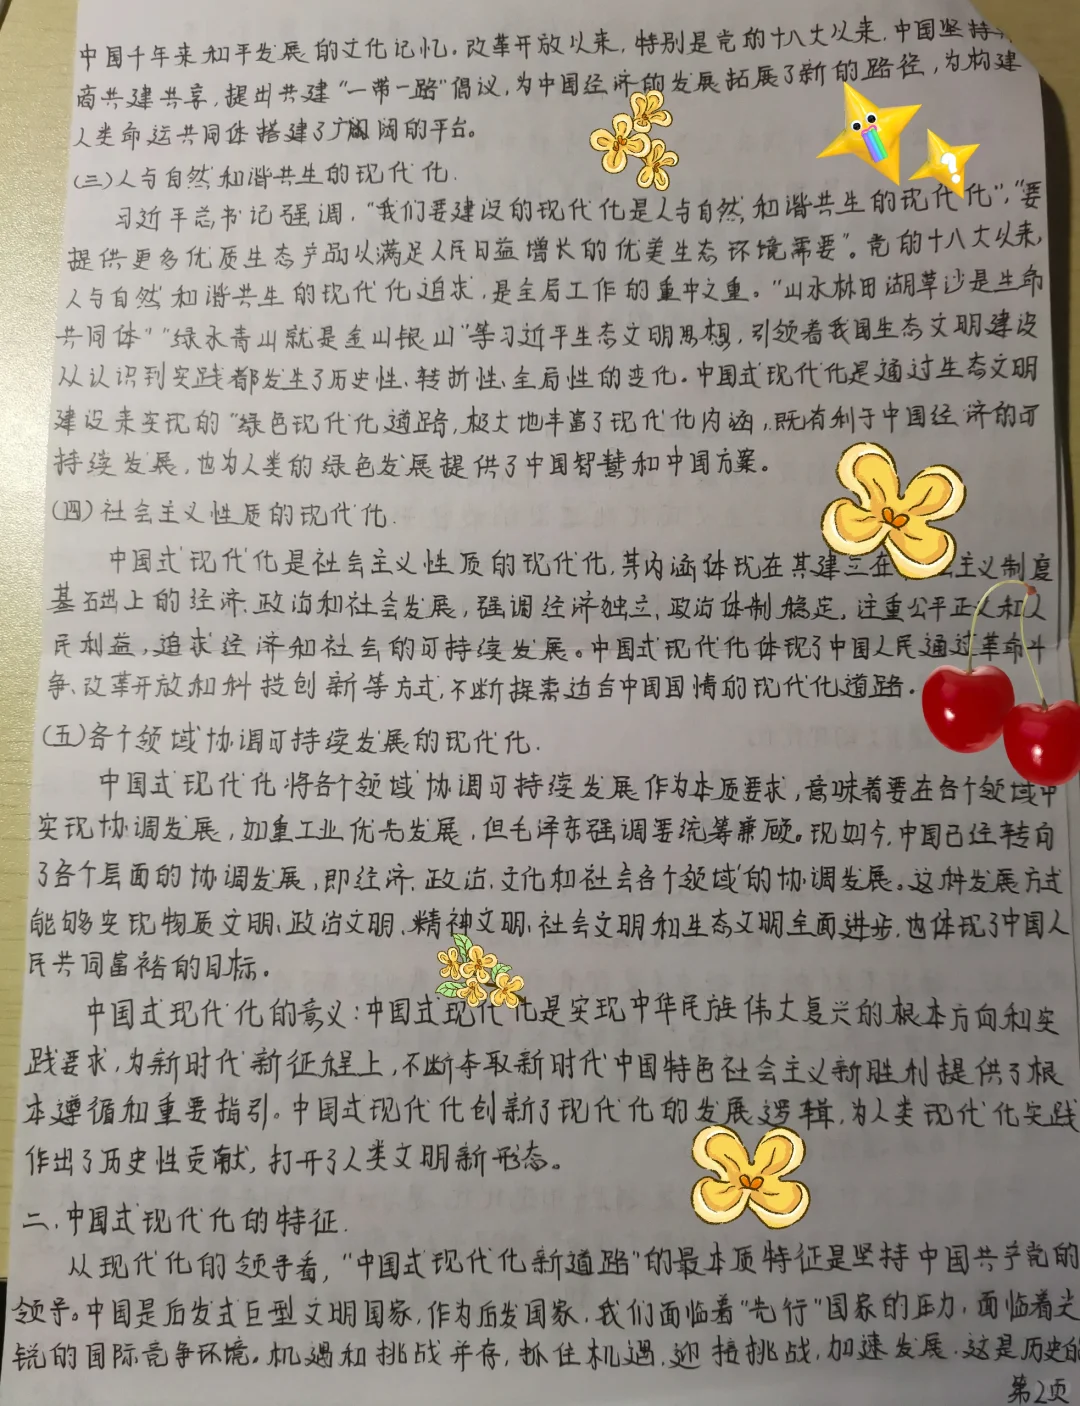 中国千年来和平发展的文化记忆。改革开放以来,特别是党的十八大以来,中国坚持
商共建共享,提出共建“一带一路”倡议,为中国经济的发展拓展了新的路径,为构建
人类命运共同体搭建了广阔的平台。
(三)人与自然和谐共生的现代化.
习近平总书记强调,“我们要建设的现代化是人与自然和谐共生的现代化”,“要
提供更多优质生态产品以满足人民日益增长的优美生态环境需要”。党的十八大以来,
人与自然和谐共生的现代化追求,是全局工作的重中之重。“山水林田湖草沙是生命
共同体”“绿水青山就是金山银山”等习近平生态文明思想,引领着我国生态文明建设
从认识到实践都发生了历史性、转折性、全局性的变化。中国式现代化是通过生态文明
建设来实现的“绿色现代化道路,极大地丰富了现代化内涵,既有利于中国经济的可
持续发展,也为人类的绿色发展提供了中国智慧和中国方案。
(四)社会主义性质的现代化.
中国式现代化是社会主义性质的现代化,其内涵体现在其建立在主义制度
基础上的经济、政治和社会发展,强调经济独立、政治体制稳定,注重公平正义和人
民利益,追求经济和社会的可持续发展。中国式现代化体现了中国人民通过革命斗
争、改革开放和科技创新等方式,不断探索适合中国国情的现代化道路。
(五)各个领域协调可持续发展的现代化.
中国式现代化将各个领域协调可持续发展作为本质要求,意味着要在各个领域中
实现协调发展,加重工业优先发展,但毛泽东强调要统筹兼顾。现如今,中国已经转向
了各个层面的协调发展,即经济、政治、文化和社会各个领域的协调发展。这种发展方式
能够实现物质文明、政治文明、精神文明、社会文明和生态文明全面进步,也体现了中国人
民共同富裕的目标。
中国式现代化的意义:中国式现代化是实现中华民族伟大复兴的根本方向和实
践要求,为新时代新征程上,不断夺取新时代中国特色社会主义新胜利提供了根
本遵循和重要指引。中国式现代化创新了现代化的发展逻辑,为人类现代化实践
作出了历史性贡献,打开了人类文明新形态。
二、中国式现代化的特征.
从现代化的领导看,“中国式现代化新道路”的最本质特征是坚持中国共产党的
领导。中国是后发式巨型文明国家,作为后发国家,我们面临着“先行”国家的压力,面临着尖
锐的国际竞争环境。机遇和挑战并存,抓住机遇,迎接挑战,加速发展,这是历史的
第2页